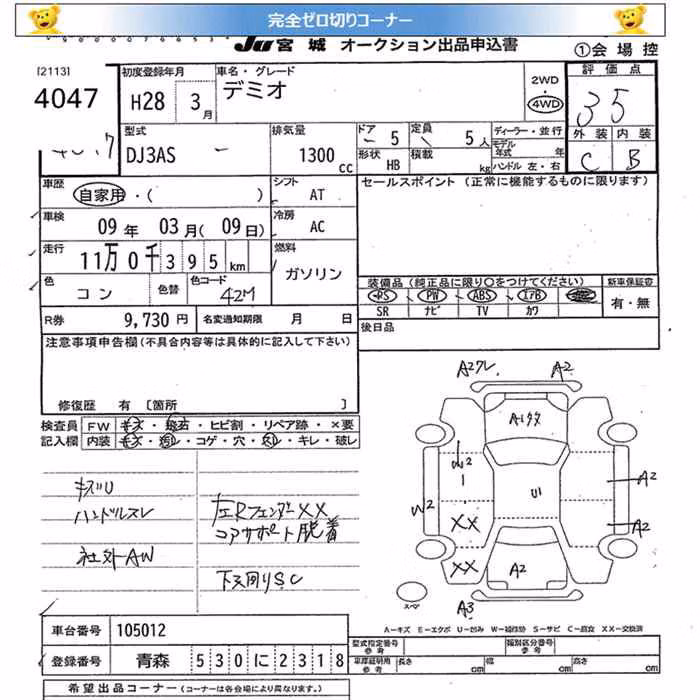 完全ゼロ切りコーナー
JU宮城 オークション出品申込書
①会場控
[2113]
4047
初度登録年月
H28 3月
車名・グレード
デミオ
2WD
・
4WD
評価点
3.5
型式
DJ3AS －
排気量
1300 CC
ドア
5
定員
5人
形状
HB
積載
kg
ディーラー・並行
モデル年式 年
ハンドル 左・右
外装 内装
C B
車歴
自家用・( )
シフト
AT
セールスポイント (正常に機能するものに限ります)
車検
09年 03月(09日)
冷房
AC
走行
11万0千395km
燃料
ガソリン
色
コン
色替
色コード
42M
装備品 (純正品に限り○をつけてください)
新車保証書
PS PW ABS エアB
SR ナビ TV カワ
有・無
R券 9,730円
名変通知期限 月 日
後日品
注意事項申告欄(不具合内容等は具体的に記入して下さい)
修復歴 有 [箇所 ]
検査員記入欄
FW キズ・飛石・ヒビ割・リペア跡・×要
内装 キズ・汚レ・コゲ・穴・スレ・キレ・破レ
キズU
ハンドルスレ
社外AW
左エRフェンダーXX
コアサポート脱着
下廻りSC
A2クレ
A2
A1クタ
W2
W2
1
U1
XX
XX
A2
A2
A2
A3
スペア
A－キズ E－エクボ U－凹み W－補修跡 S－サビ C－腐食 XX－交換済
車台番号 105012
登録番号 青森 530に2318
型式指定番号
参考
類別区分番号
参考
車庫証明用
参考
長さ cm
幅 cm
高さ cm
希望出品コーナー(コーナーは各会場により異なります。)